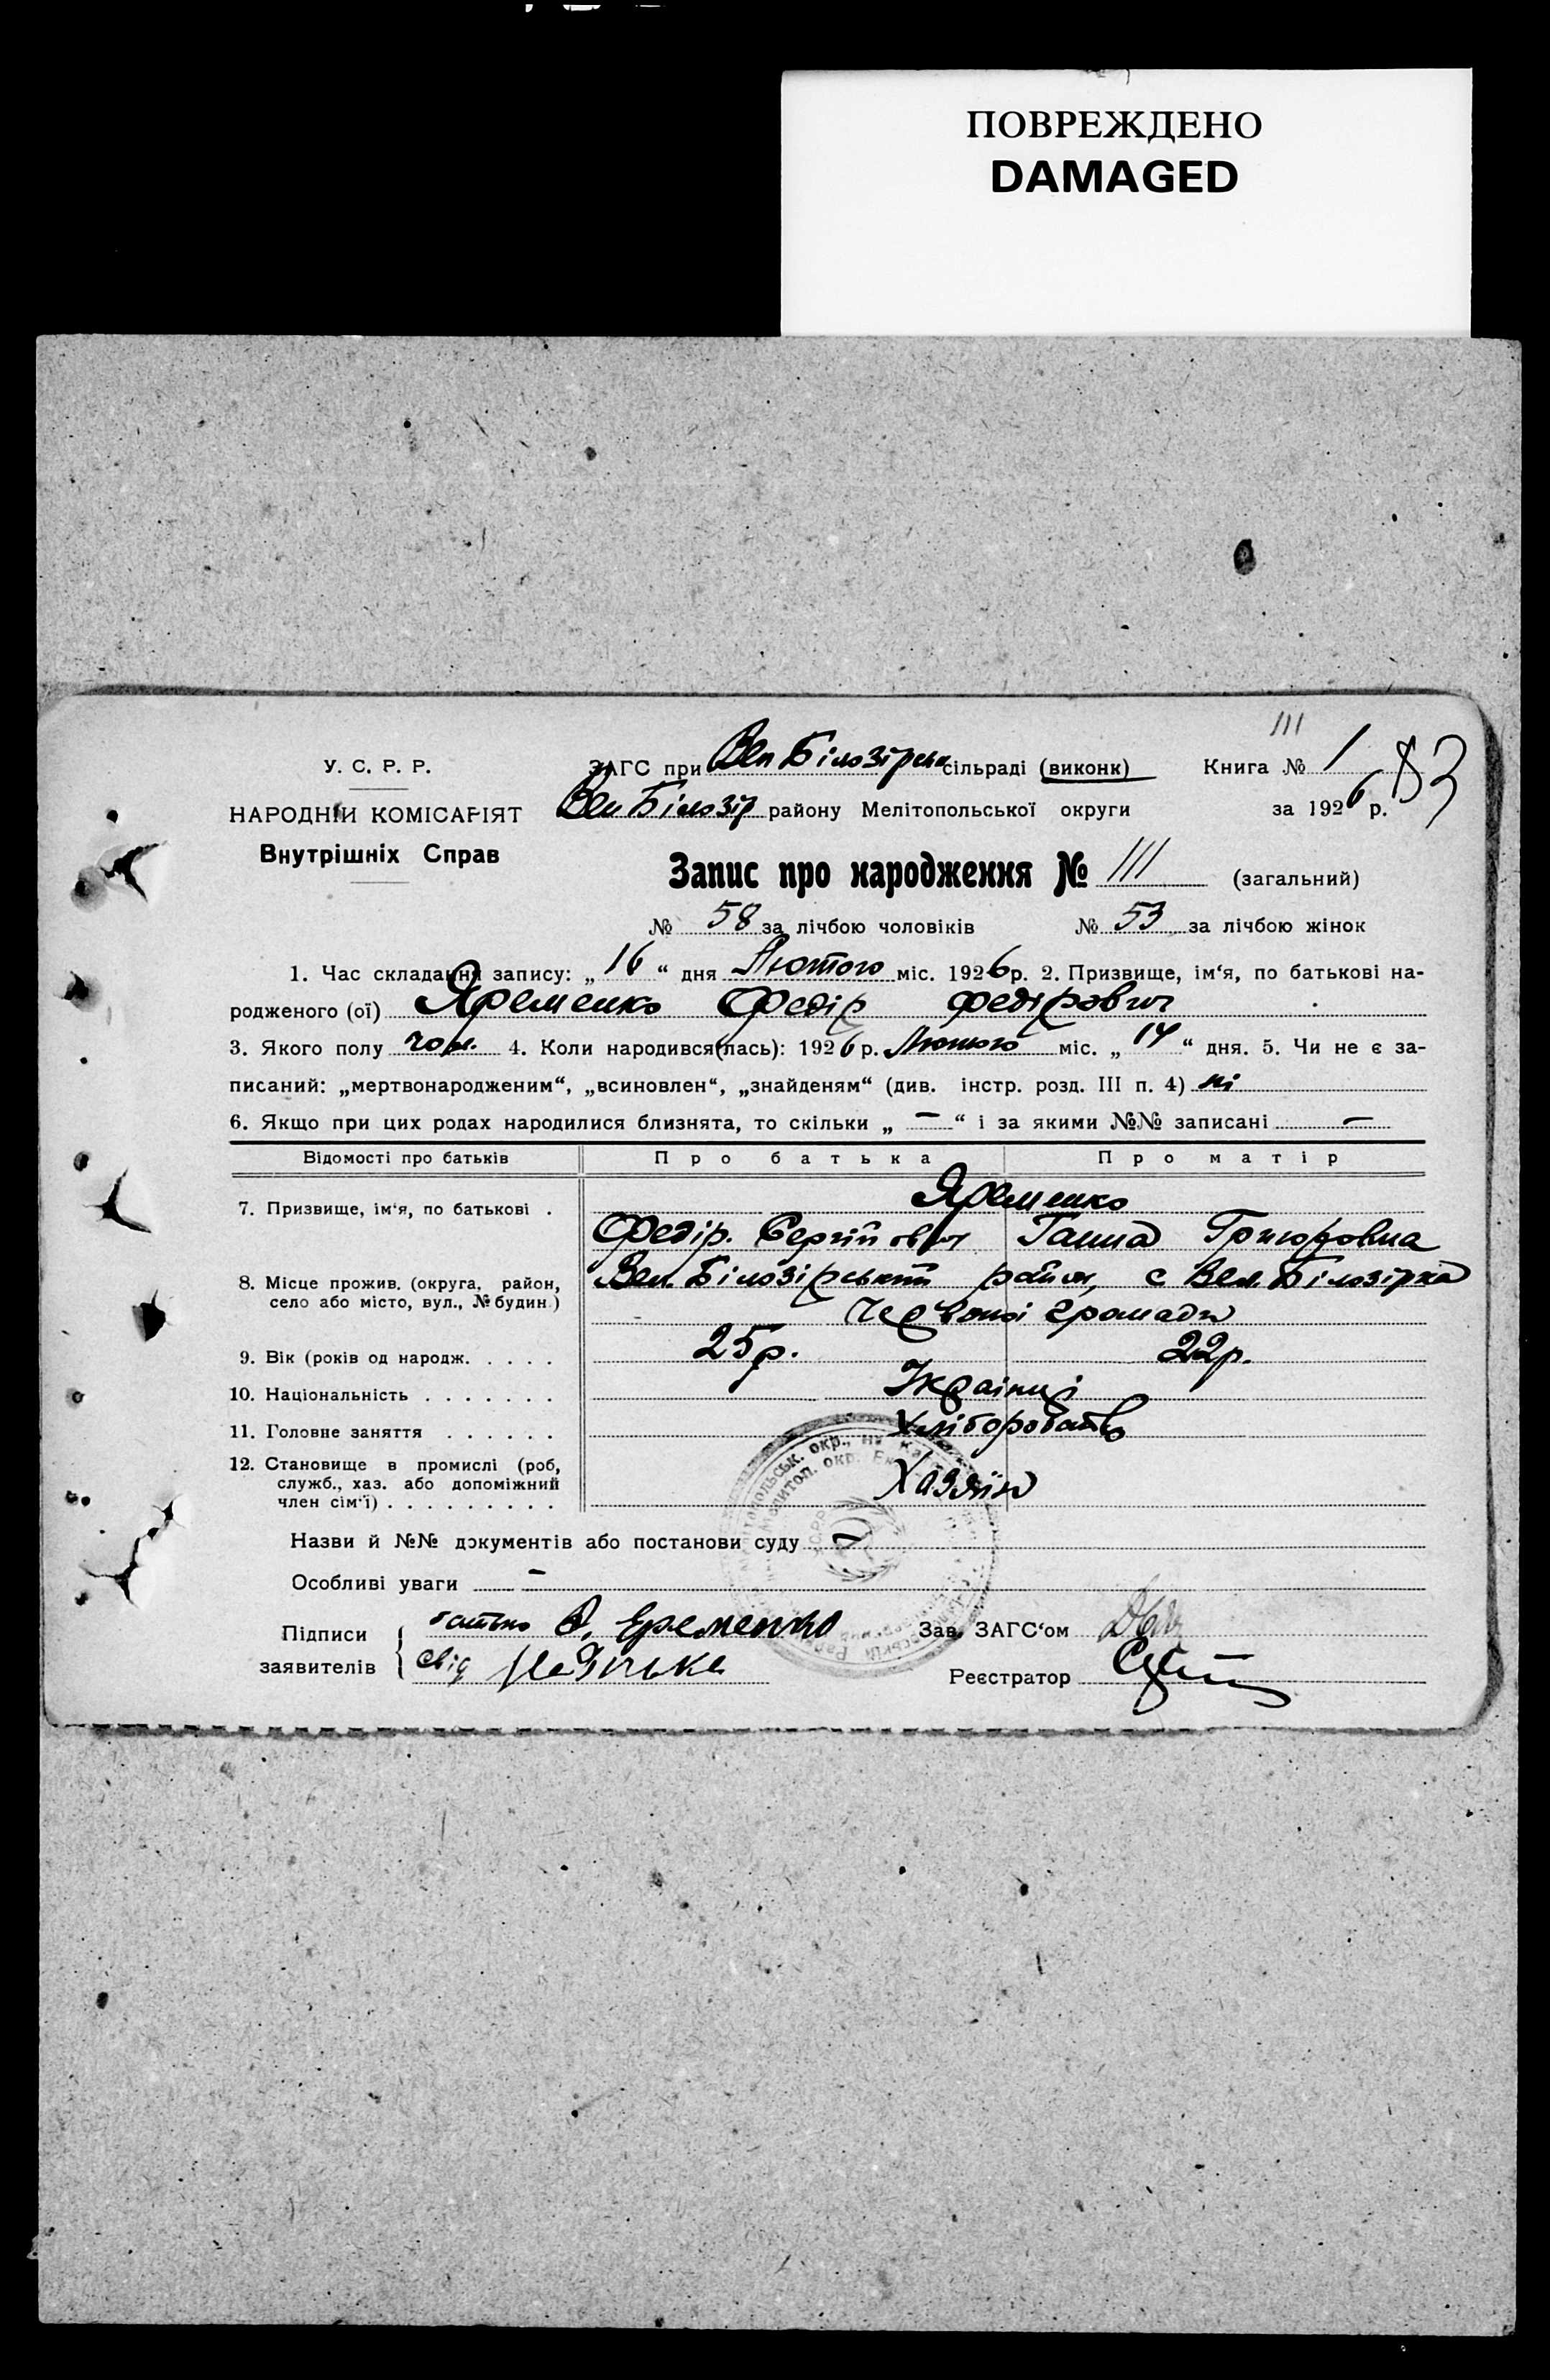 ПОВРЕЖДЕНО
DAMAGED
111
У. С. Р. Р.
ЗАГС при Вел Білозірськ сільраді (виконк)
Книга № 1
83
НАРОДНІЙ КОМІСАРІЯТ
Вел Білозір району Мелітопольської округи
за 1926 р.
Внутрішніх Справ
Запис про народження № 111 (загальний)
№ 58 за лічбою чоловіків № 53 за лічбою жінок
1. Час складання запису: „ 16 “ дня Лютого міс. 1926 р. 2. Призвище, ім‘я, по батькові на-
родженого (ої) Яременко Федір Федірович
3. Якого полу чол. 4. Коли народився(лась): 1926 р. Лютого міс. „ 14 “ дня. 5. Чи не є за-
писаний: „мертвонародженим“, „всиновлен“, „знайденям“ (див. інстр. розд. III п. 4) ні
6. Якщо при цих родах народилися близнята, то скільки „ — “ і за якими №№ записані —
Відомості про батьків Про батька Про матір
7. Призвище, ім‘я, по батькові . Яременко
Федір. Сергійович Ганна Григоровна
8. Місце прожив. (округа, район, село або місто, вул., № будин.) Вел. Білозірський район, с Вел. Білозірка
Червоної громади
9. Вік (років од народж. . . . . 25 р. 22 р.
10. Національність . . . . . . . Українці
11. Головне заняття . . . . . . Хліборобств
12. Становище в промислі (роб,
служб., хаз. або допоміжний
член сім‘ї) . . . . . . . . . Хазяїн
Назви й №№ документів або постанови суду —
Особливі уваги —
Підписи заявителів { батько Ф. Еременко
свід
Зав. ЗАГС‘ом
Реєстратор